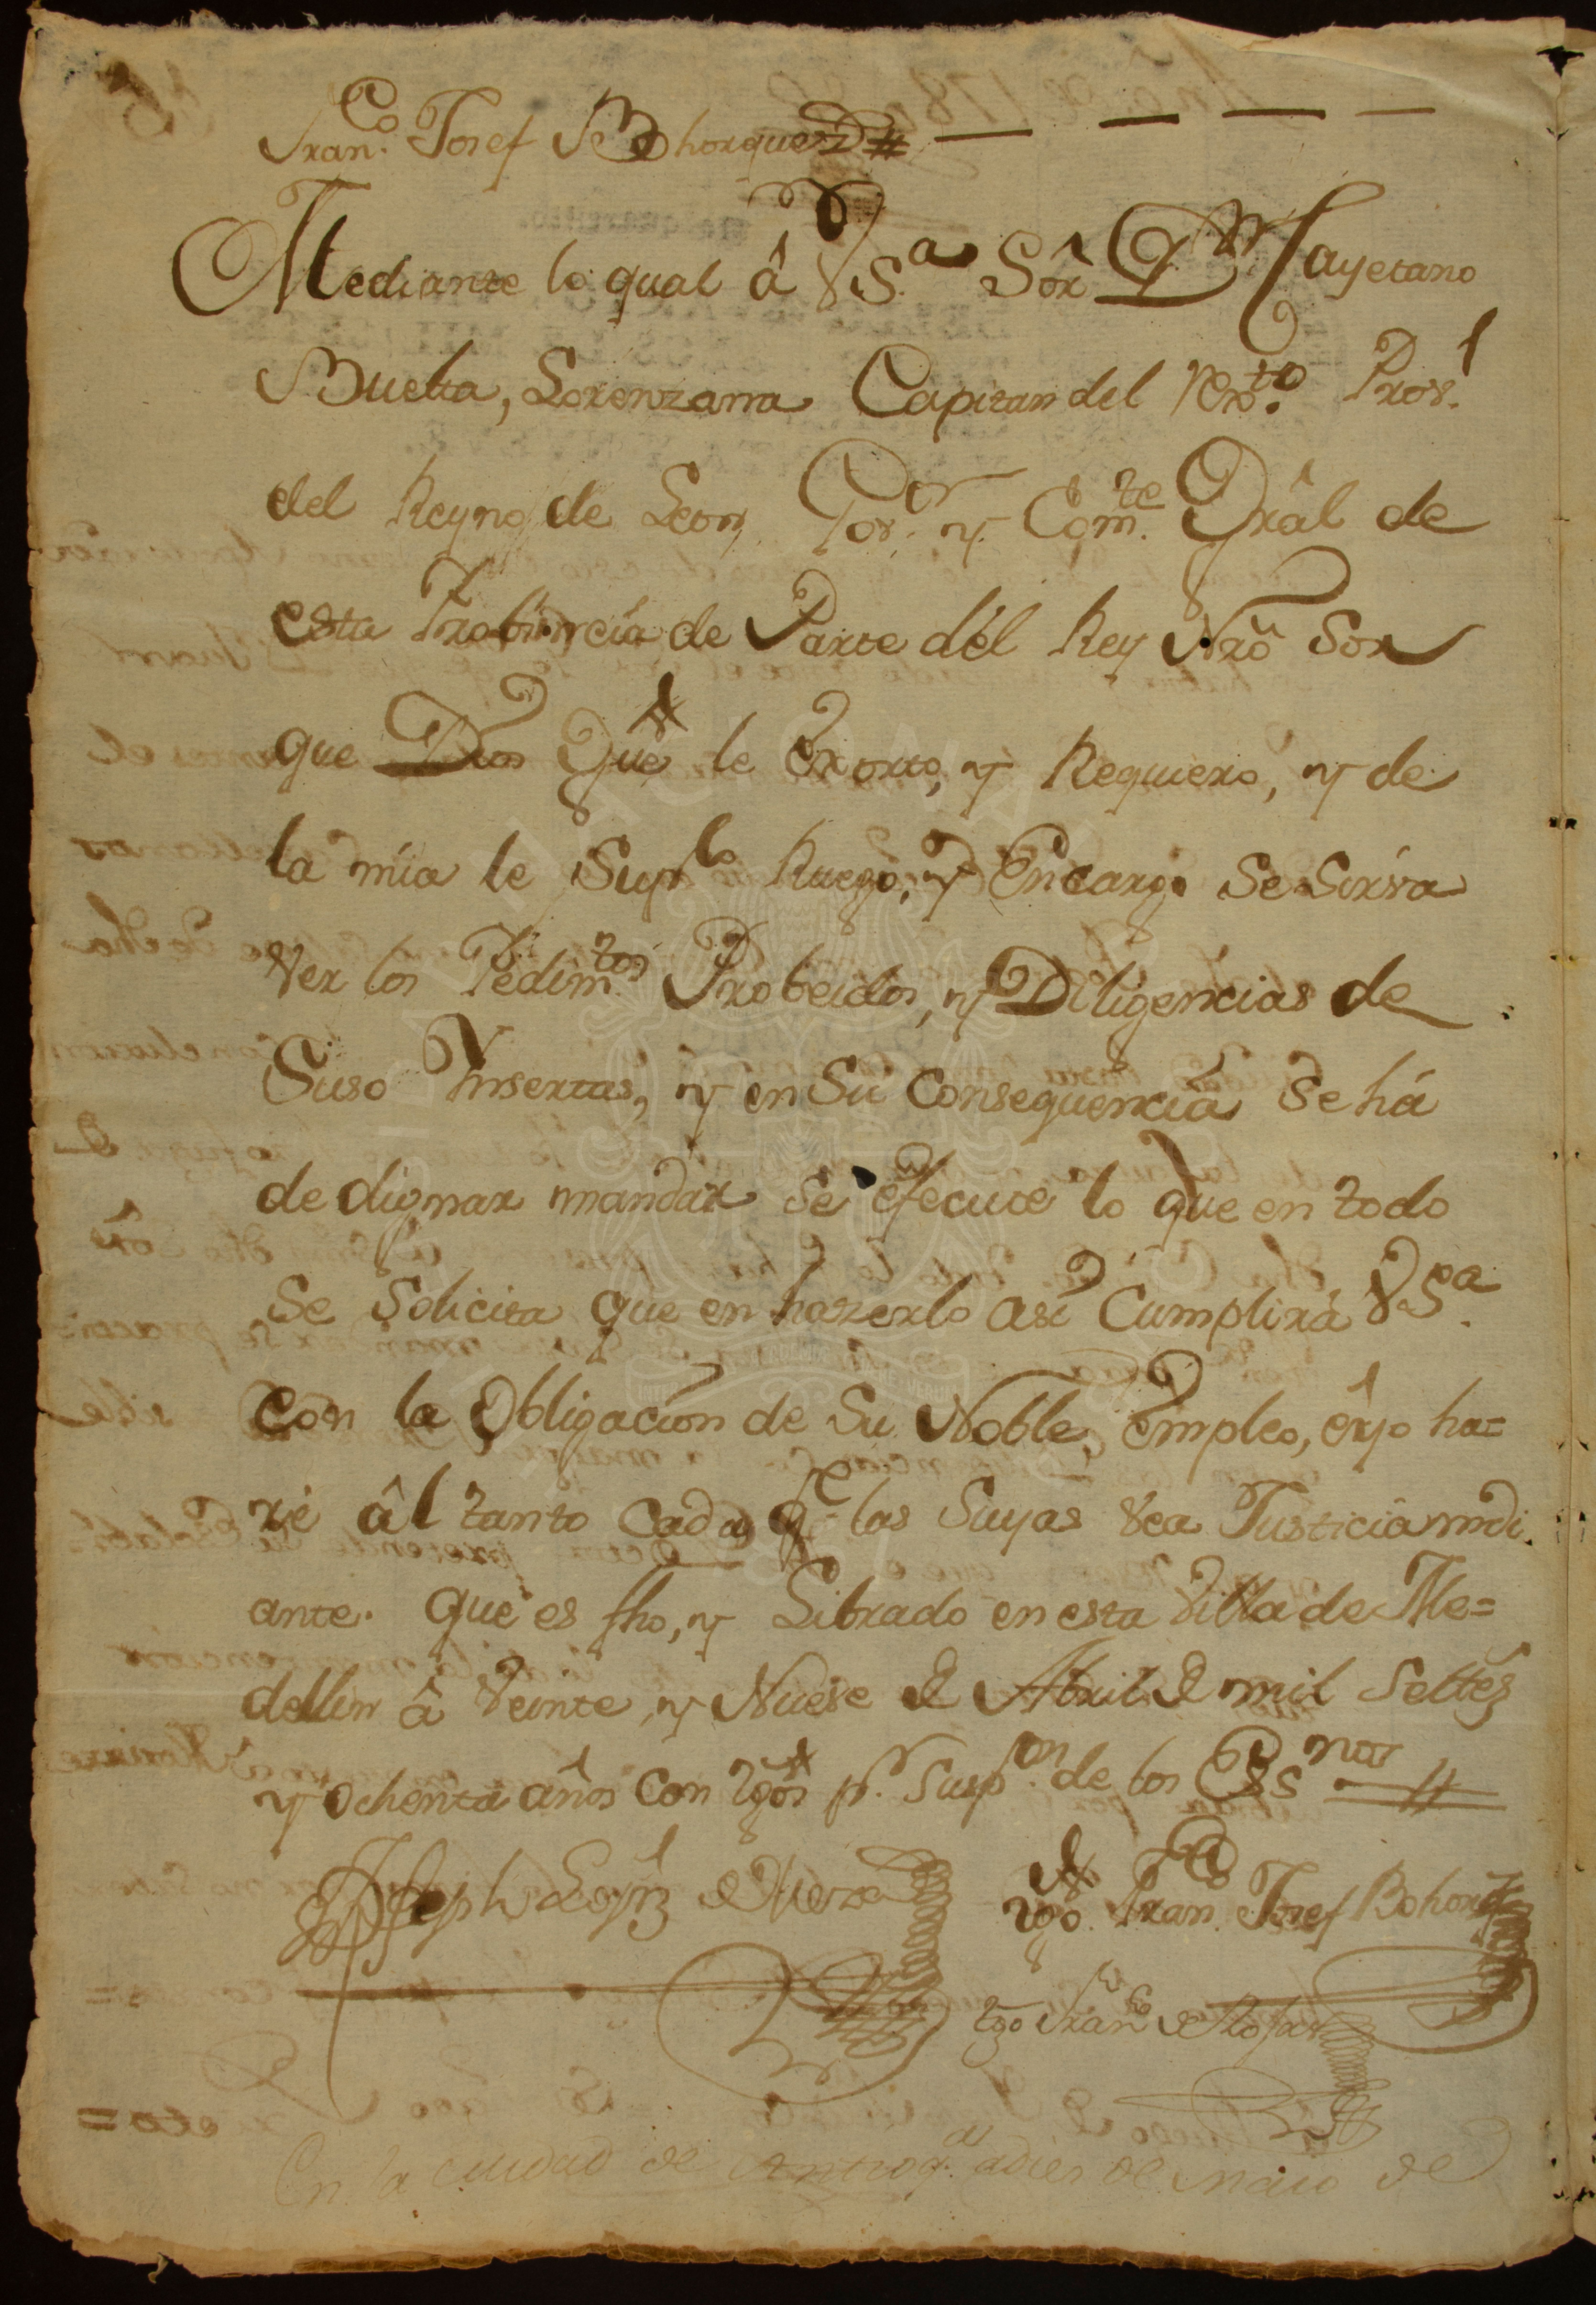 Fran.co Josef Bohorquez #
Mediante lo qual â VS.a Sôr Dn Cayetano
Buelta, Lorenzana Capitan del Rex.to Prov.l
del Reyno de Leon Gov.or y Com.te Grâl de
esta Probincia de Parte dél Rey Nrô Sor
que Dios Gue le Exorto, y Requiero, y de
la mia le Sup.co Ruego, y Encargo Se Sirva
Ver los Pedim.tos Probeidos, y Diligencias de
Suso Insertas, y en Su Consequencia Se há
de dignar mandar Se efecute lo que en todo
Se Solicita que en hazerlo asi Cumplirá VS.a
con la Obligacion de Su Noble, empleo, é yo ha=
ré âl tanto Cada q.e las Suyas Vea Justicia mdi.
ante. que es fho, y Librado en esta Villa de Me=
dellin â Veinte, y Nueve de Abril de mil Settez
y ochenta años Con tgôs p.r Susp.on de los Ess.nos #
Joseph Lopz de Mesa
tgo. Fran.co Josef Bohorqz
tgo Fran.co
En la ciudad de Antioq.a a dies de maio de